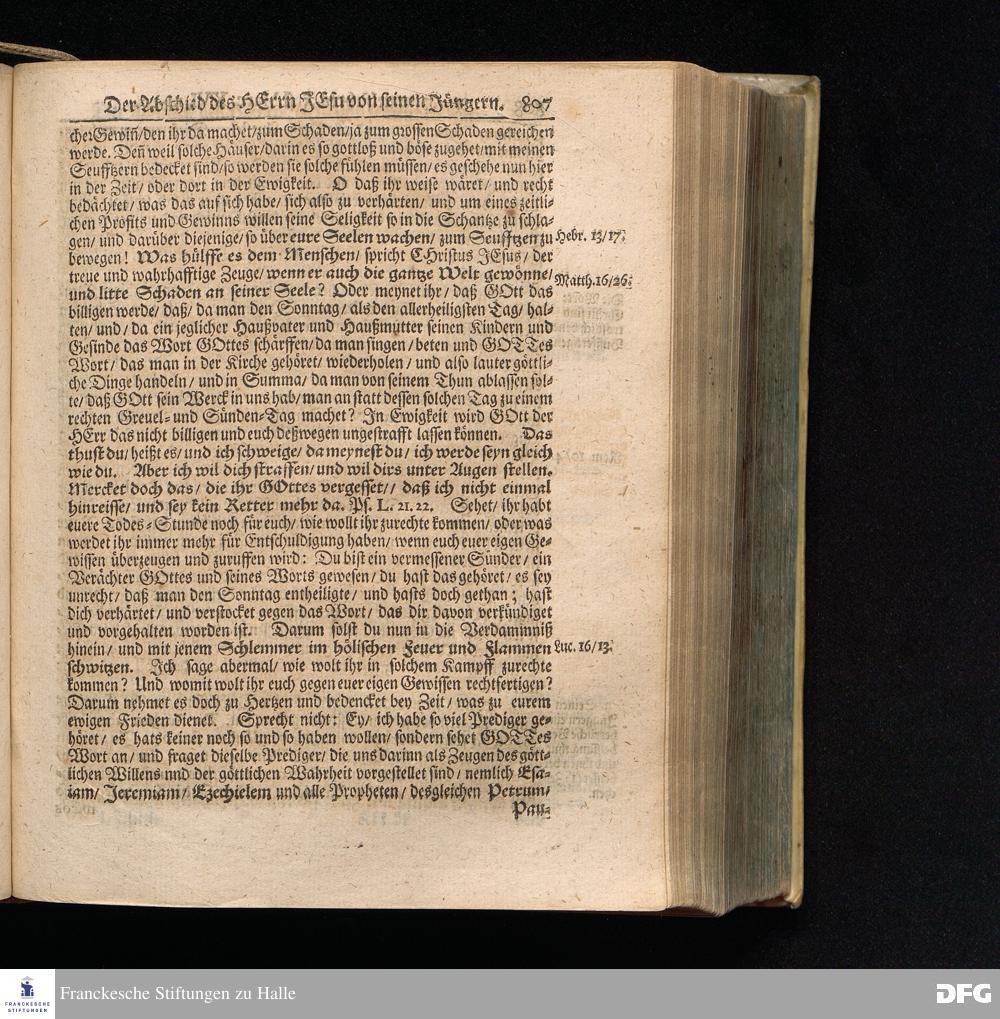 Der Abschied des HErrn JEsu von seinen Jüngern. 807
cher Gewiñ/ den ihr da machet/ zum Schaden/ ja zum grossen Schaden gereichen
werde. Deñ weil solche Häuser/ darin es so gottloß und böse zugehet/ mit meinen
Seufftzern bedecket sind/ so werden sie solche fühlen müssen/ es geschehe nun hier
in der Zeit/ oder dort in der Ewigkeit. O daß ihr weise wäret/ und recht
bedächtet/ was das auf sich habe/ sich also zu verhärten/ und um eines zeitli-
chen Profits und Gewinns willen seine Seligkeit so in die Schantze zu schla-
gen/ und darüber diejenige/ so über eure Seelen wachen/ zum Seufftzen zu
Hebr. 13/17.
bewegen! Was hülffe es dem Menschen/ spricht CHristus JEsus/ der
treue und wahrhafftige Zeuge/ wenn er auch die gantze Welt gewönne/
Matth. 16/26.
und litte Schaden an seiner Seele? Oder meynet ihr/ daß GOtt das
billigen werde/ daß/ da man den Sonntag/ als den allerheiligsten Tag/ hal-
ten/ und/ da ein jeglicher Haußvater und Haußmutter seinen Kindern und
Gesinde das Wort GOttes schärffen/ da man singen/ beten und GOTTes
Wort/ das man in der Kirche gehöret/ wiederholen/ und also lauter göttli-
che Dinge handeln/ und in Summa/ da man von seinem Thun ablassen sol-
te/ daß GOtt sein Werck in uns hab/ man an statt dessen solchen Tag zu einem
rechten Greuel- und Sünden-Tag machet? In Ewigkeit wird GOtt der
HErr das nicht billigen und euch deßwegen ungestrafft lassen können. Das
thust du/ heißt es/ und ich schweige/ da meynest du/ ich werde seyn gleich
wie du. Aber ich wil dich straffen/ und wil dirs unter Augen stellen.
Mercket doch das/ die ihr GOttes vergesset// daß ich nicht einmal
hinreisse/ und sey kein Retter mehr da. Ps. L. 21. 22. Sehet/ ihr habt
euere Todes-Stunde noch für euch/ wie wollt ihr zurechte kommen/ oder was
werdet ihr immer mehr für Entschuldigung haben/ wenn euch euer eigen Ge-
wissen überzeugen und zuruffen wird: Du bist ein vermessener Sünder/ ein
Verächter GOttes und seines Worts gewesen/ du hast das gehöret/ es sey
unrecht/ daß man den Sonntag entheiligte/ und hasts doch gethan; hast
dich verhärtet/ und verstocket gegen das Wort/ das dir davon verkündiget
und vorgehalten worden ist. Darum solst du nun in die Verdammniß
hinein/ und mit jenem Schlemmer im hölischen Feuer und Flammen
Luc. 16/13.
schwitzen. Ich sage abermal/ wie wolt ihr in solchem Kampff zurechte
kommen? Und womit wolt ihr euch gegen euer eigen Gewissen rechtfertigen?
Darum nehmet es doch zu Hertzen und bedencket bey Zeit/ was zu eurem
ewigen Frieden dienet. Sprecht nicht: Ey/ ich habe so viel Prediger ge-
höret/ es hats keiner noch so und so haben wollen/ sondern sehet GOTTes
Wort an/ und fraget dieselbe Prediger/ die uns darinn als Zeugen des gött-
lichen Willens und der göttlichen Wahrheit vorgestellet sind/ nemlich Esa-
iam/ Jeremiam/ Ezechielem und alle Propheten/ desgleichen Petrum/
Pau-
FRANCKESCHE
STIFTUNGEN
Franckesche Stiftungen zu Halle
DFG